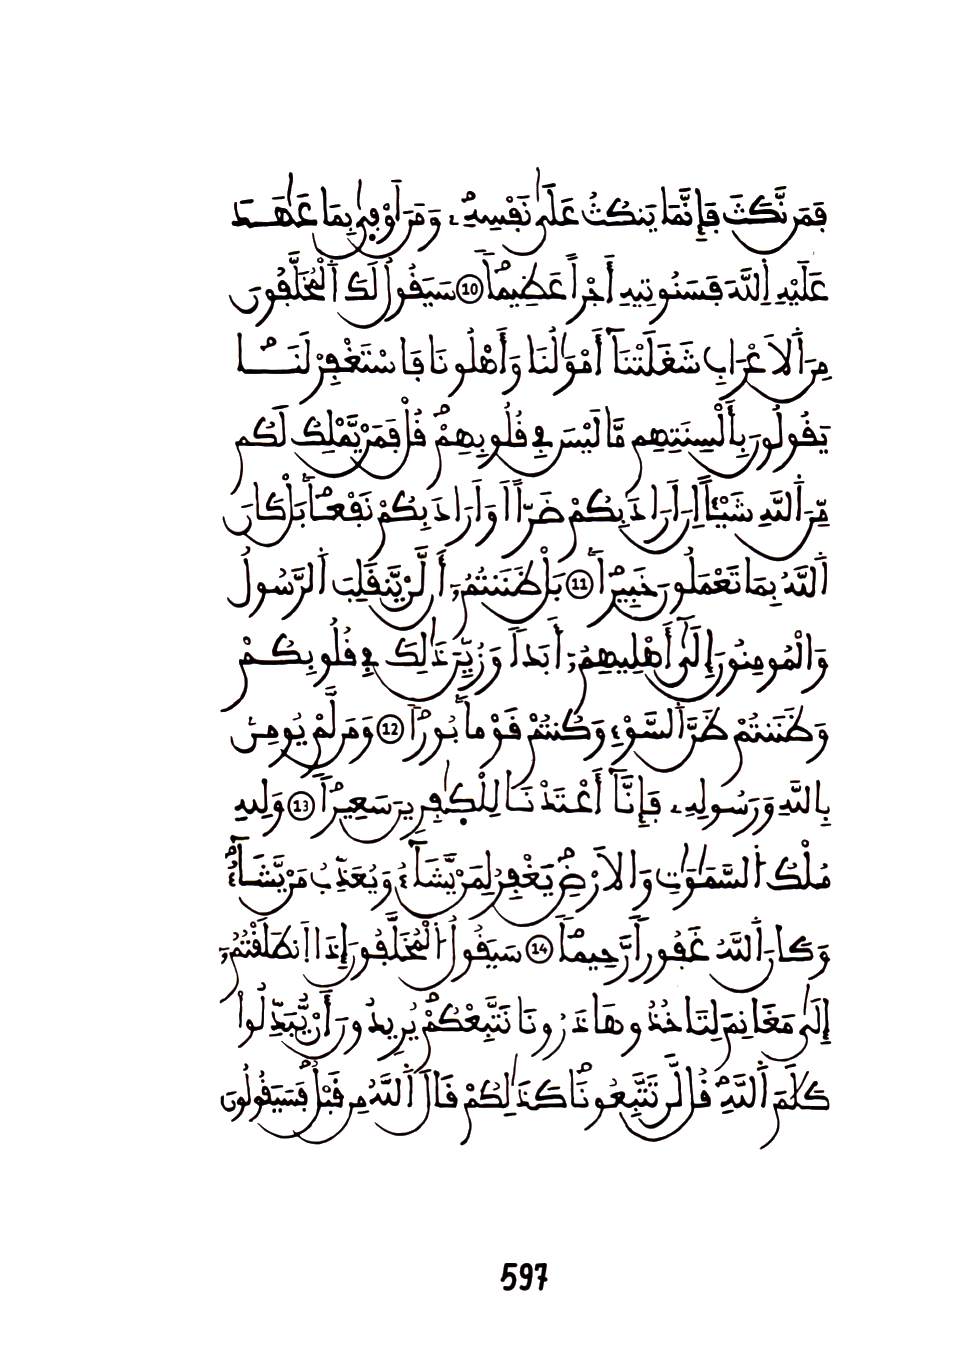 فَمَن نَّكَثَ فَإِنَّمَا يَنكُثُ عَلَىٰ نَفْسِهِۦ وَمَنَ اَوْفِىٰ بِمَا عَٰهَدَ
عَلَيْهِ اِ۬للَّهَ فَسَنُوتِيهِ أَجْراً عَظِيماً 10 سَيَقُولُ لَكَ اَ۬لْمُخَلَّفُونَ
مِنَ اَ۬لَاعْرَابِ شَغَلَتْنَآ أَمْوَٰلُنَا وَأَهْلُونَا فَاسْتَغْفِرْ لَنَا
يَقُولُونَ بِأَلْسِنَتِهِم مَّا لَيْسَ فِے قُلُوبِهِمْ قُلْ فَمَنْ يَّمْلِكُ لَكُم
مِّنَ اَ۬للَّهِ شَيْـٔاً اِنَ اَرَادَ بِكُمْ ضَرّاً اَوَ اَرَادَ بِكُمْ نَفْعاً بَلْ كَانَ
اَ۬للَّهُ بِمَا تَعْمَلُونَ خَبِيراً 11 بَلْ ظَنَنتُمُۥٓ أَن لَّنْ يَّنقَلِبَ اَ۬لرَّسُولُ
وَالْمُومِنُونَ إِلَىٰٓ أَهْلِيهِمُۥٓ أَبَداً وَزُيِّنَ ذَٰلِكَ فِے قُلُوبِكُمْ
وَظَنَنتُمْ ظَنَّ اَ۬لسَّوْءِ وَكُنتُمْ قَوْماً بُوراً 12 وَمَن لَّمْ يُومِنۢ
بِاللَّهِ وَرَسُولِهِۦ فَإِنَّآ أَعْتَدْنَا لِلْكٰ۪فِرِينَ سَعِيراً 13 وَلِلهِ
مُلْكُ اُ۬لسَّمَٰوَٰتِ وَالَارْضِ يَغْفِرُ لِمَنْ يَّشَآءُ وَيُعَذِّبُ مَنْ يَّشَآءُ
وَكَانَ اَ۬للَّهُ غَفُوراً رَّحِيماً 14 سَيَقُولُ اُ۬لْمُخَلَّفُونَ إِذَا اَ۪نطَلَقْتُمُۥٓ
إِلَىٰ مَغَانِمَ لِتَاخُذُوهَا ذَرُونَا نَتَّبِعْكُمْ يُرِيدُونَ أَنْ يُّبَدِّلُواْ
كَلَٰمَ اَ۬للَّهِ قُل لَّن تَتَّبِعُونَا كَذَٰلِكُمْ قَالَ اَ۬للَّهُ مِن قَبْلُ فَسَيَقُولُونَ
597